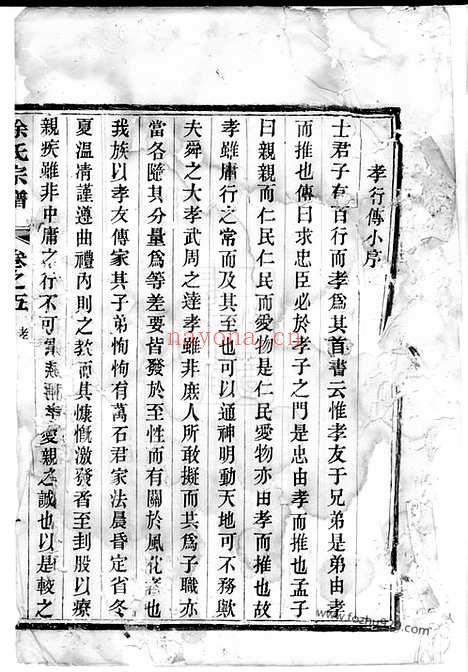 孝行傳小序
士君子有百行而孝爲其首書云惟孝友于兄弟是弟由孝
而推也傳曰求忠臣必於孝子之門是忠由孝而推也孟子
曰親親而仁民仁民而愛物是仁民愛物亦由孝而推也故
孝雖庸行之常而及其至也可以通神明動天地可不務歟
夫舜之大孝武周之達孝雖非庶人所敢擬而其爲子職亦
當各隨其分量爲等差要皆發於至性而有關於風化者也
我族以孝友傳家其子弟恂恂有萬石君家法晨昏定省冬
夏溫凊謹遵曲禮內則之教而其慷慨激發者至刲股以療
親疾雖非中庸之行不可 愛親之誠也以是較之
徐氏宗譜 卷之五 孝
nayona.cn
www.fozhu920.com